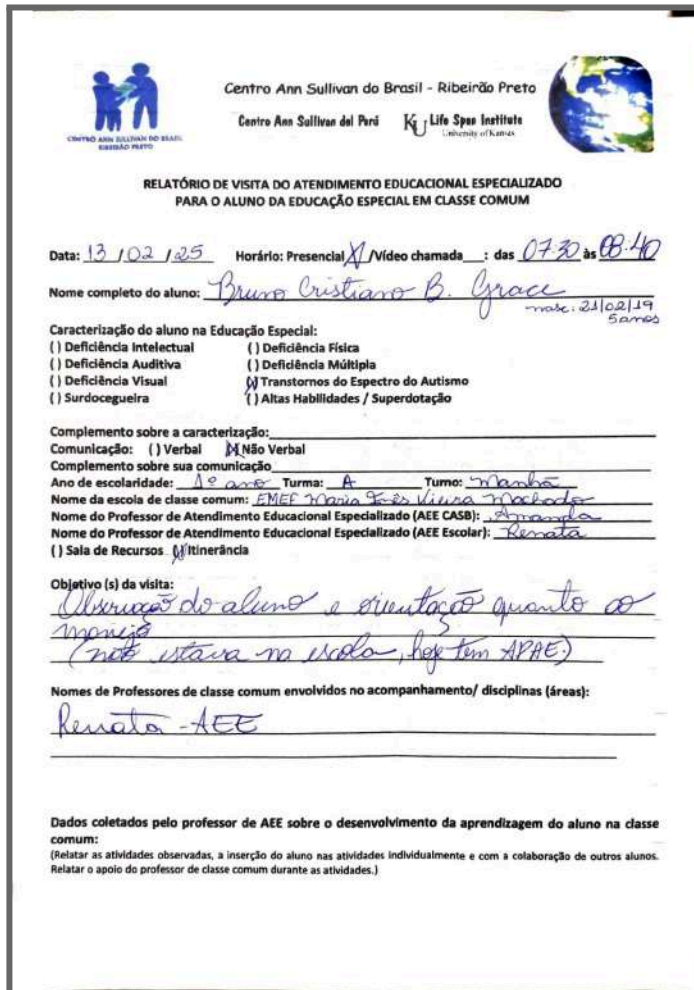 CENTRO ANN SULLIVAN DO BRASIL
RIBEIRÃO PRETO
Centro Ann Sullivan do Brasil - Ribeirão Preto
Centro Ann Sullivan del Perú KU Life Span Institute
University of Kansas
RELATÓRIO DE VISITA DO ATENDIMENTO EDUCACIONAL ESPECIALIZADO
PARA O ALUNO DA EDUCAÇÃO ESPECIAL EM CLASSE COMUM
Data: 13 / 02 / 25 Horário: Presencial X /Vídeo chamada___: das 07:30 às 08:40
Nome completo do aluno: Bruno Cristiano B. Grace
nasc: 21/02/19
5 anos
Caracterização do aluno na Educação Especial:
( ) Deficiência Intelectual ( ) Deficiência Física
( ) Deficiência Auditiva ( ) Deficiência Múltipla
( ) Deficiência Visual (X) Transtornos do Espectro do Autismo
( ) Surdocegueira ( ) Altas Habilidades / Superdotação
Complemento sobre a caracterização:
Comunicação: ( ) Verbal (X) Não Verbal
Complemento sobre sua comunicação
Ano de escolaridade: 1º ano Turma: A Turno: Manhã
Nome da escola de classe comum: EMEF Maria Inês Vieira Machado
Nome do Professor de Atendimento Educacional Especializado (AEE CASB): Amanda
Nome do Professor de Atendimento Educacional Especializado (AEE Escolar): Renata
( ) Sala de Recursos (X) Itinerância
Objetivo (s) da visita:
Observação do aluno e orientação quanto ao
manejo
(não estava na escola, hoje tem APAE.)
Nomes de Professores de classe comum envolvidos no acompanhamento/ disciplinas (áreas):
Renata - AEE
Dados coletados pelo professor de AEE sobre o desenvolvimento da aprendizagem do aluno na classe
comum:
(Relatar as atividades observadas, a inserção do aluno nas atividades individualmente e com a colaboração de outros alunos.
Relatar o apoio do professor de classe comum durante as atividades.)